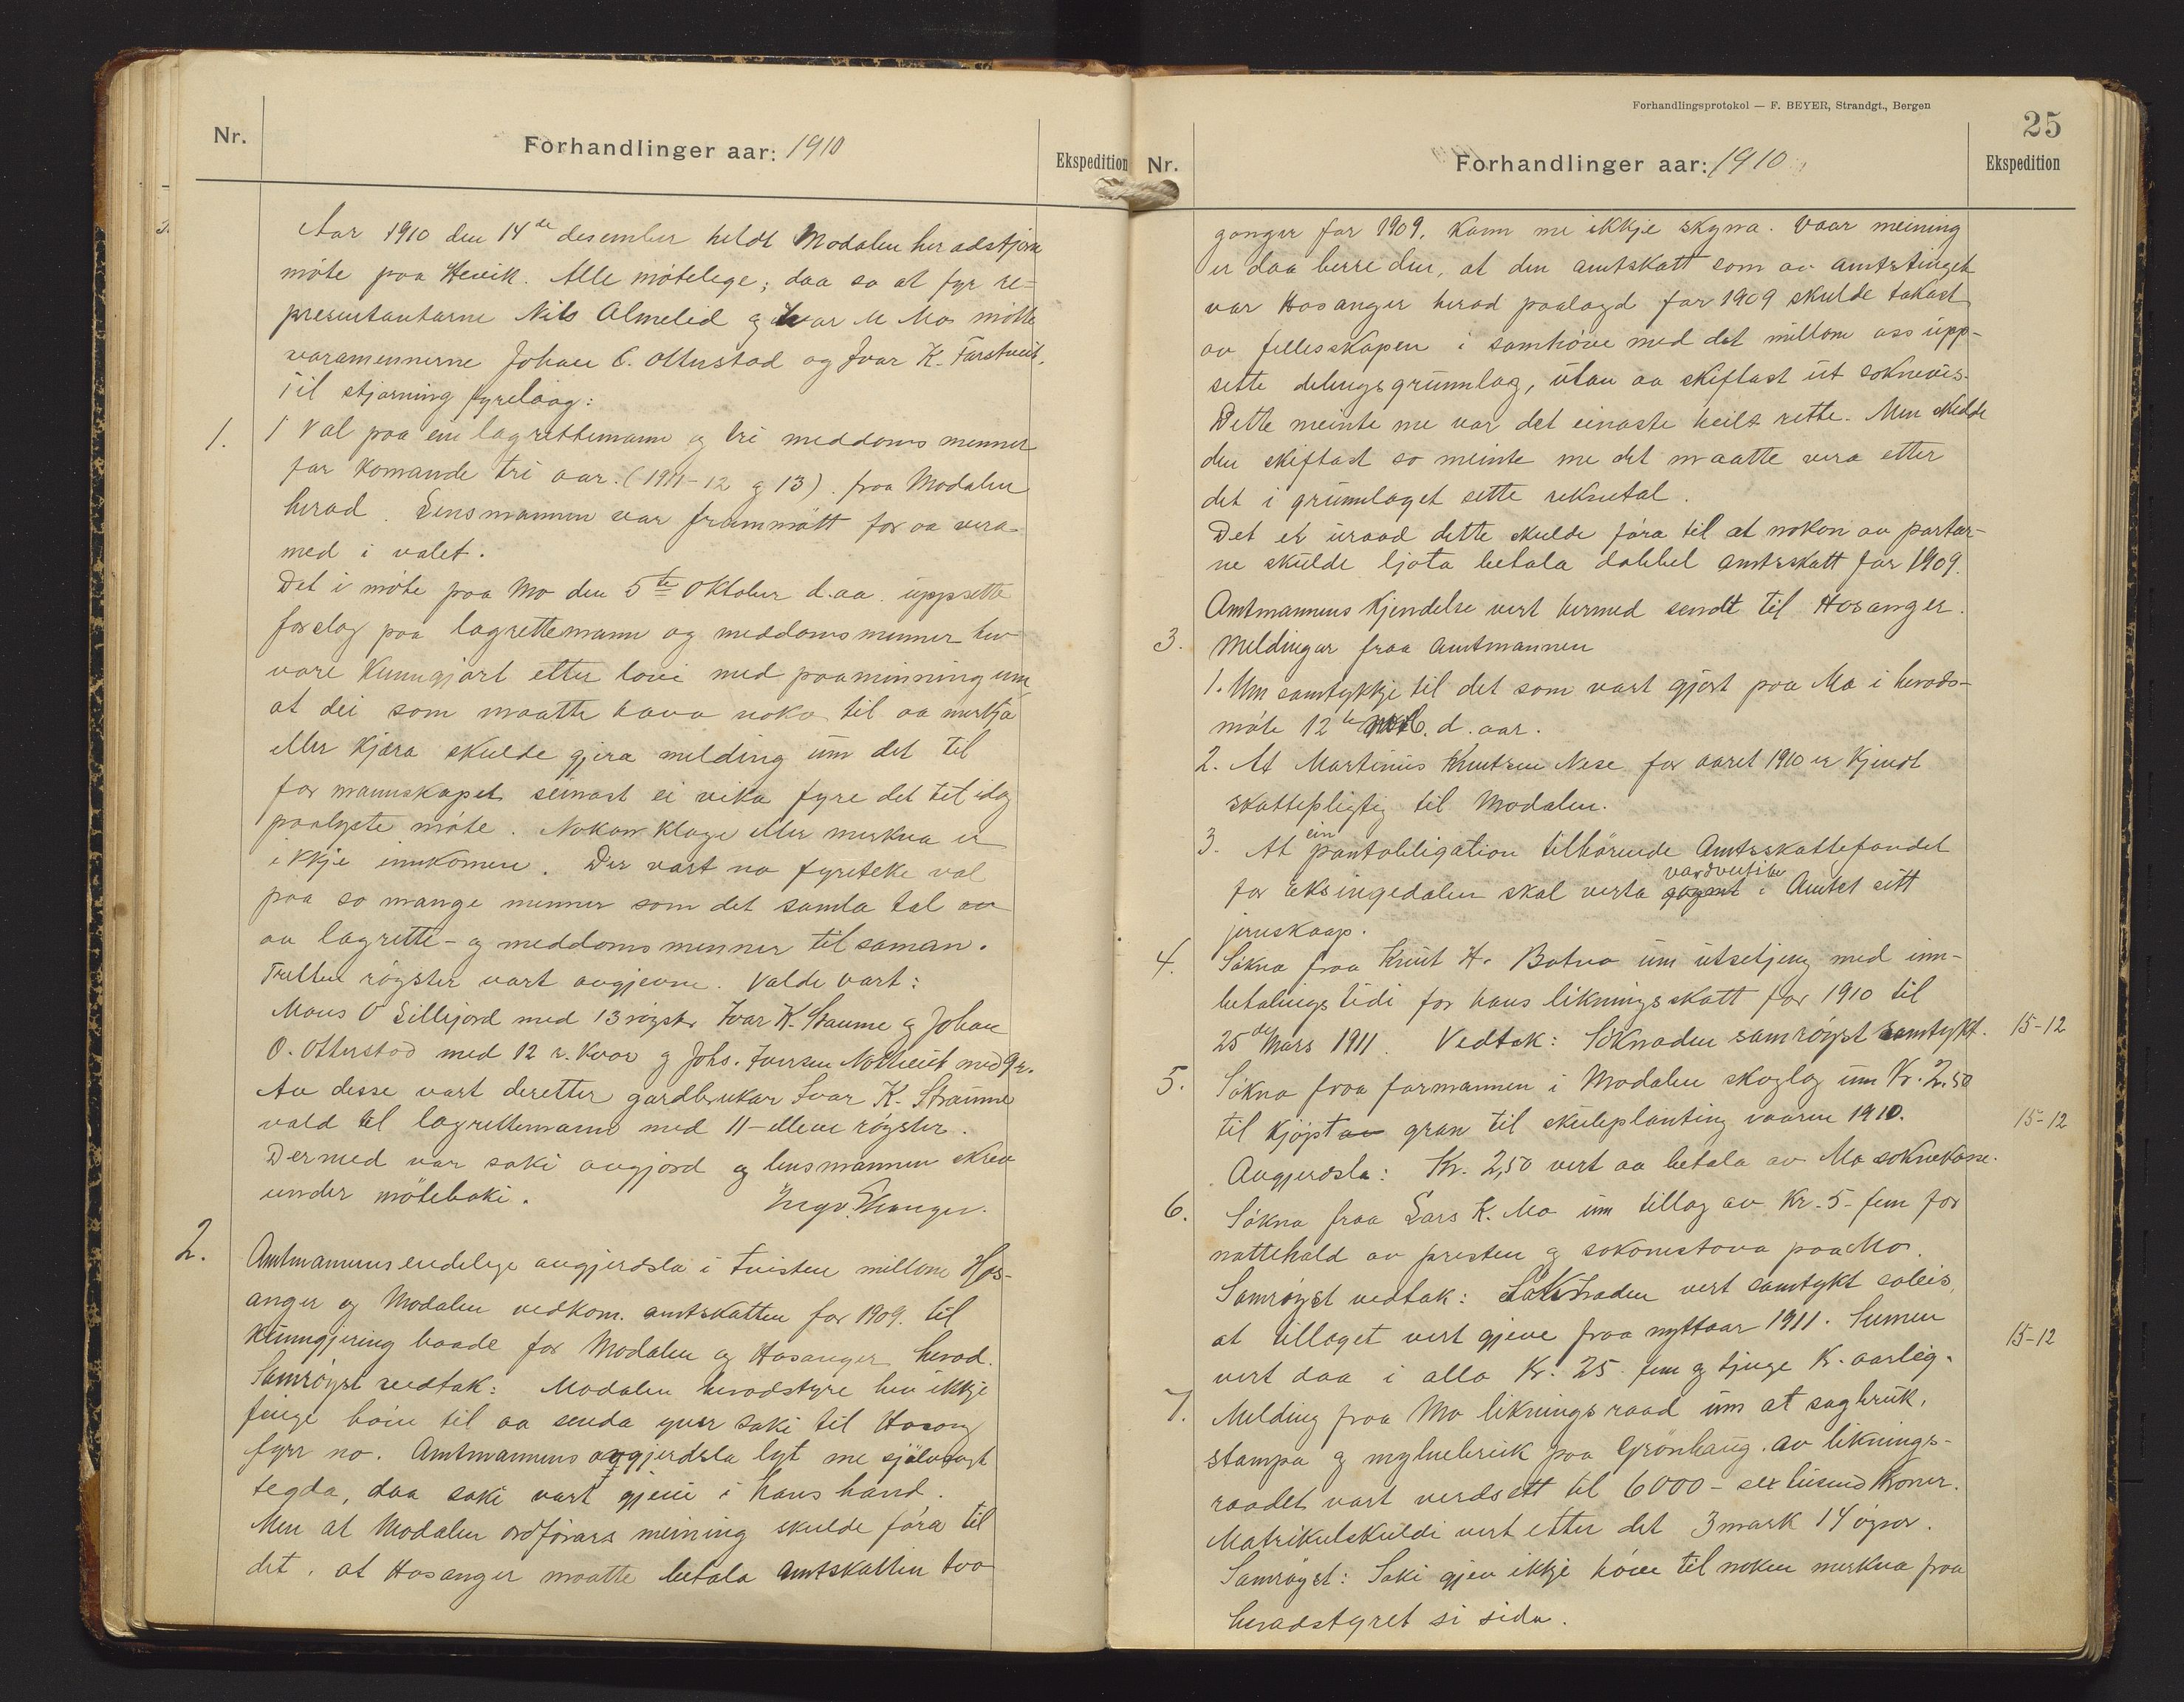 Nr.
Forhandlinger aar: 1910
Ekspedition
Aar 1910 den 14de desember heldt Modalen heradstjora
möte paa Hevik. Alle mötelege; daa so at fyr re-
presentantarne Nils Almelid og Ivar M Mo mötte
varamennerne Johan O. Otterstad og Ivar K. Farstveit.
Til stjorning fyrelaag:
1. 1 Val paa ein lagrettemann og tri meddomsmenner
for komande tri aar. (1911-12 og 13) fraa Modalen
herad. Lensmannen var frammött for aa vera
med i valet.
Det i möte paa Mo den 5te oktober d.aa. uppsette
forslag paa lagrettemann og meddomsmenner hev
vore kunngjort etter lovi med paaminning um
at dei som maatte hava noko til aa merkja
eller kjæra skulde gjera melding um det til
formannskapet seinast ei vika fyre det til idag
paalyste möte. Nokon klage eller merkna er
ikkje innkomen. Der vart no fyreteke val
paa so mange menner som det samla tal av
av lagrette- og meddomsmenner tilsaman.
Trettan röyster vart avgjevne. Valde vart:
Mons O Sillijord med 13 röyster Ivar K. Straume og Johan
O. Otterstad med 12 r. kvar og Johs. Iversen Nottveit med 9 r.
Av desse vart deretter gardbrukar Ivar K. Straume
vald til lagrettemann med 11-elleve röyster.
Dermed var saki avgjord og lensmannen skrev
under möteboki.
Ingv. Hanger.
2. Amtmannens endelege avgjerdsla i tvisten millom Hos-
anger og Modalen vedkom. amtskatten for 1909. til
kunngjering baade for Modalen og Hosanger herad.
Samröyst vedtak: Modalen heradstyre hev ikkje
fenge höve til aa senda yver saki til Hosang
fyrr no. Amtmannens avgjerdsla lyt me sjölvsagt
tegda, daa saki vart gjeve i hans hand.
Men at Modalen ordförars meining skulde föra til
det, at Hosanger maatte betala amtskatten tvo
Forhandlingsprotokol — F. BEYER, Strandgt., Bergen
25
Nr.
Forhandlinger aar: 1910
Ekspedition
gonger for 1909, kann me ikkje skyna. Vaar meining
er daa berre den, at den amtskatt som av amtstinget
var Hosanger herad paalagd for 1909 skulde takast
av fellesskapen i samhöve med det millom oss upp-
sette delingsgrunnlag, utan aa skiftast ut soknevis.
Dette meinte me var det einaste heilt rette. Men skulde
den skiftast so meinte me det maatte vera etter
det i grunnlaget sette reknetal.
Det er uraad dette skulde föra til at nokon av partar-
ne skulde ljota betala dobbel amtsskatt for 1909.
Amtmannens kjendelse vert hermed sendt til Hosanger.
3. Meldingar fraa amtmannen
1. Um samtykkje til det som vart gjort paa Mo i herads-
möte 12te d. aar.
2. At Martinus Knutsen Nese for aaret 1910 er kjendt
skattepligtig til Modalen.
3. At ein pantobligation tilhörende Amtsskattefondet
for Eksingedalen skal verta vardveitt i Amtet sitt
jernskaap.
4. Sökna fraa Knut H. Botna um utsetjing med inn-
betalingstidi for hans likningsskatt for 1910 til
25de Mars 1911. Vedtak: Söknaden samröyst samtykt. 15-12
5. Sökna fraa formannen i Modalen skoglag um Kr. 2.50
til kjöpt av gran til skuleplanting vaaren 1910. 15-12
Avgjerdsla: Kr. 2,50 vert aa betala av Mo soknekasse.
6. Sökna fraa Lars K. Mo um tillag av Kr. 5- fem for
nattehald av presten og sokomstova paa Mo.
Samröyst vedtak: Söknaden vert samtykt soleis,
at tillaget vert gjeve fraa nyttaar 1911. Sumen 15-12
vert daa i alla Kr. 25. fem og tjuge K. aarleg.
7. Melding fraa Mo likningsraad um at sagbruk,
stampa og mylnebruk paa Grönhaug. av liknings-
raadet vart verdsett til 6000 - sextusund Kroner.
Matrikulskuldi vert etter det 3 mark 14 öyror.
Samröyst: Saki gjev ikkje höve til noken merkna fraa
heradstyret si sida.